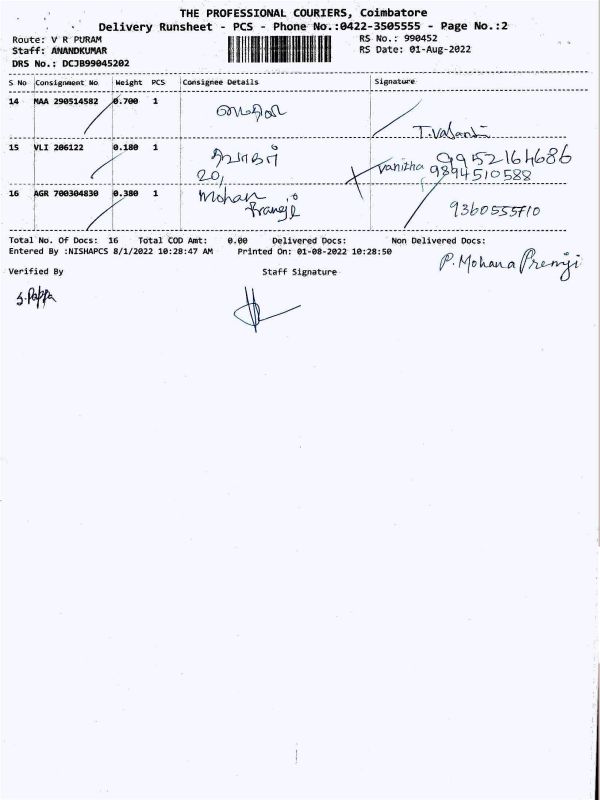 THE PROFESSIONAL COURIERS, Coimbatore
Delivery Runsheet - PCS - Phone No.:0422-3505555 - Page No.:2
Route: V R PURAM
RS No.: 990452
Staff: ANANDKUMAR
RS Date: 01-Aug-2022
DRS No.: DCJB99045202
S No Consignment No Weight PCS Consignee Details Signature
14 MAA 290514582 0.700 1
T.Vasanthi
15 VLI 206122 0.180 1
20,
Vanitha 9952164686
9894510588
16 AGR 700304830 0.380 1 Mohan
9360555710
Total No. Of Docs: 16 Total COD Amt: 0.00 Delivered Docs: Non Delivered Docs:
Entered By :NISHAPCS 8/1/2022 10:28:47 AM Printed On: 01-08-2022 10:28:50
P. Mohana Premji
Verified By Staff Signature
S. Pappa